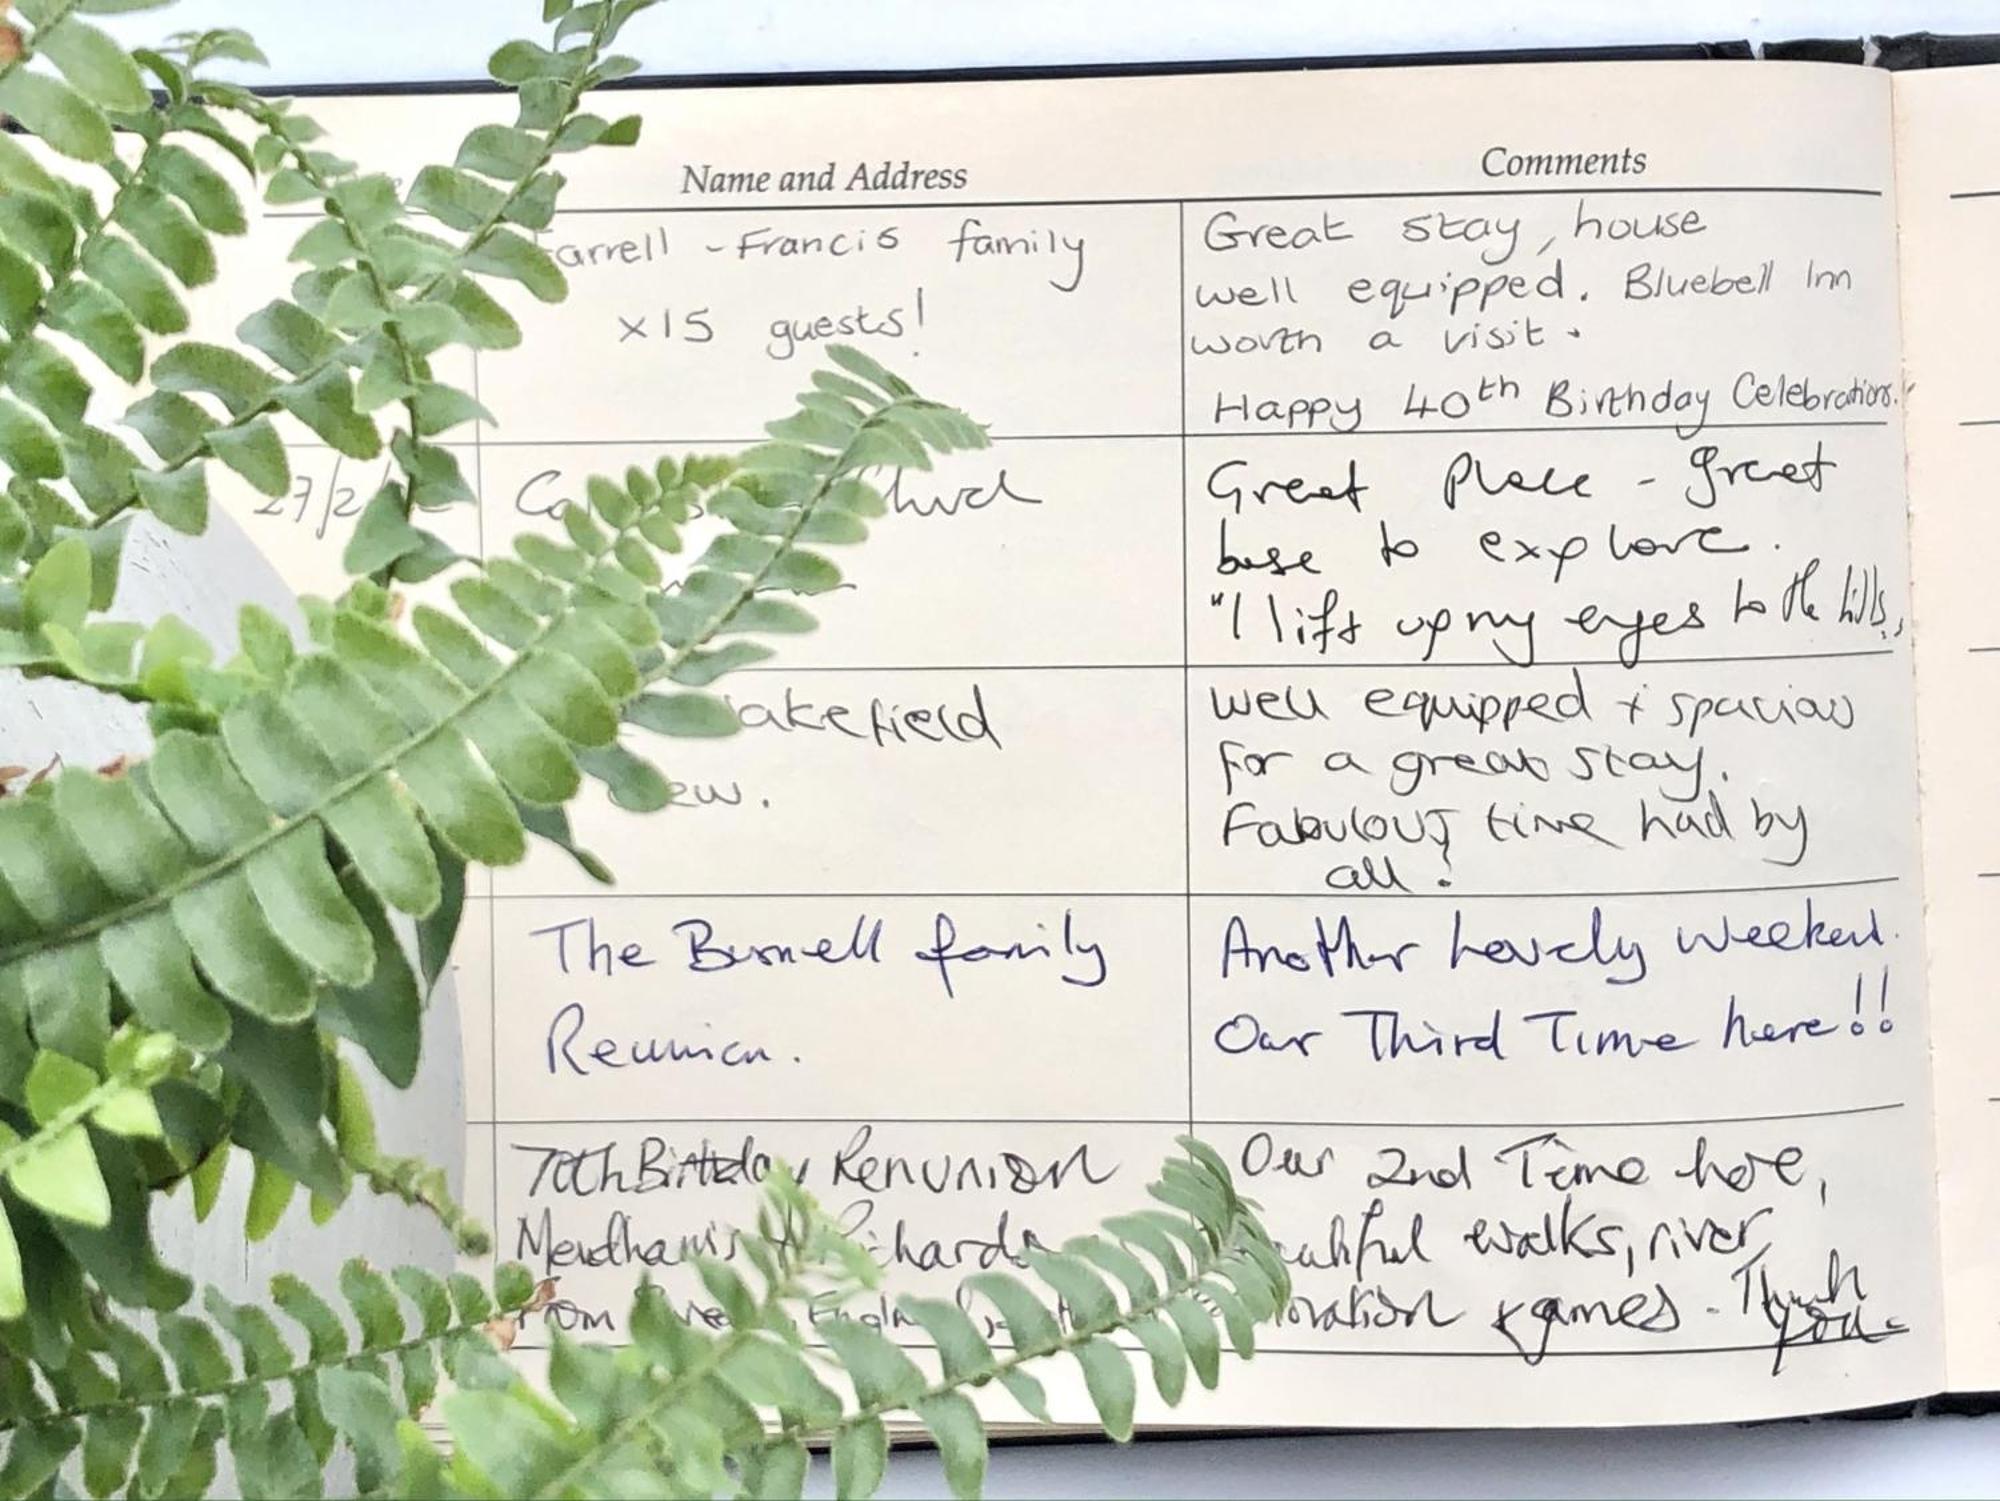 Name and Address
Comments
Farrell - Francis family
x15 guests!
Great stay, house
well equipped. Bluebell Inn
worth a visit.
Happy 40th Birthday Celebrations!
27/2/
Great Place - great
base to explore.
"I lift up my eyes to the hills,
akefield
ew.
well equipped + spacious
for a great stay.
Fabulous time had by
all!
The Burnell family
Reunion.
Another Lovely Weekend.
Our Third Time here!!
70th Birthday Renunion
Our 2nd Time here,
walks, river,
games - Thank
you